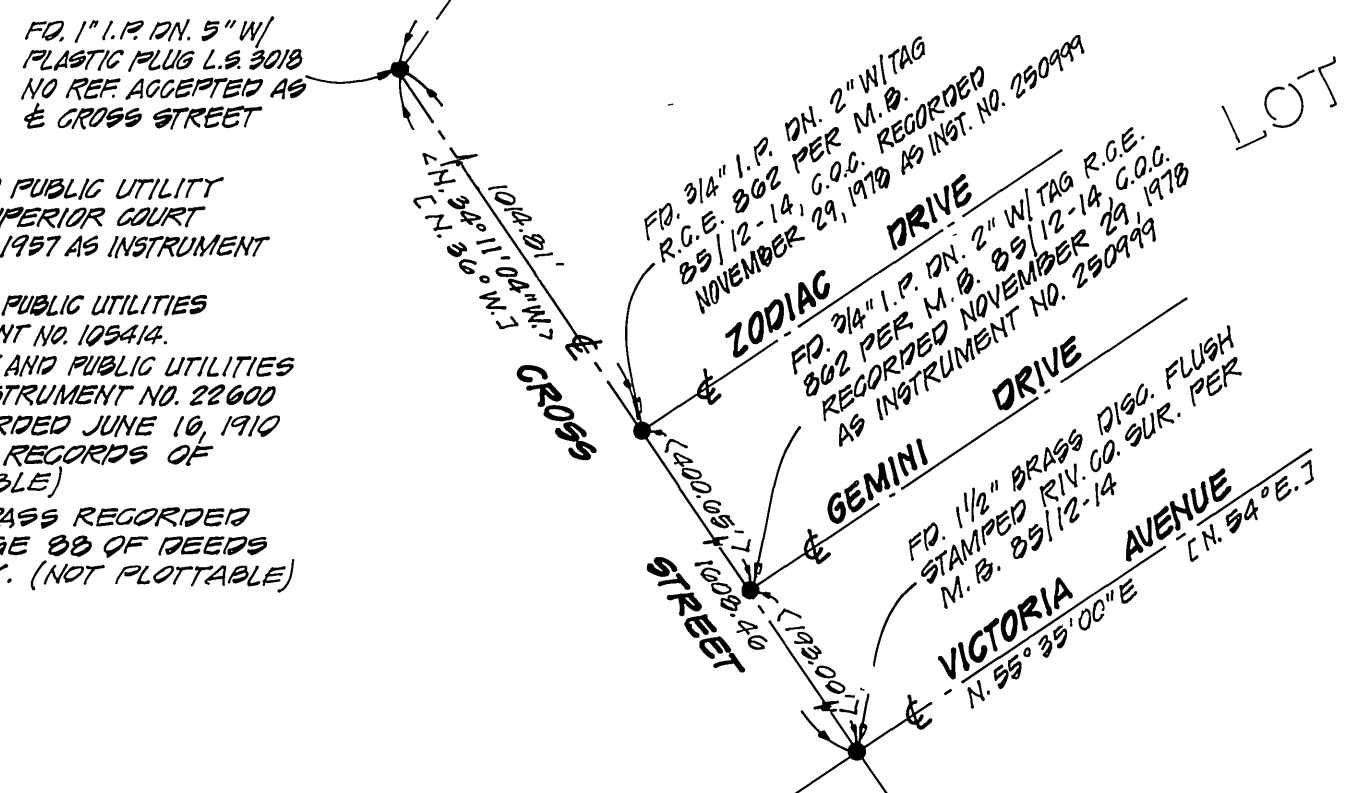 FD. 1" I.P. DN. 5" W/
PLASTIC PLUG L.S. 3018
NO REF. ACCEPTED AS
℄ CROSS STREET
PUBLIC UTILITY
SUPERIOR COURT
1957 AS INSTRUMENT
PUBLIC UTILITIES
NO. 105414.
AND PUBLIC UTILITIES
INSTRUMENT NO. 22600
JUNE 16, 1910
RECORDS OF
RECORDED
88 OF DEEDS
(NOT PLOTTABLE)
1014.81'
<N. 34°11'04"W.>
[N. 36° W.]
℄
CROSS
STREET
FD. 3/4" I.P. DN. 2" W/TAG
R.C.E. 862 PER M.B.
85/12-14, C.O.C. RECORDED
NOVEMBER 29, 1978 AS INST. NO. 250999
℄ ZODIAC DRIVE
FD. 3/4" I.P. DN. 2" W/TAG R.C.E.
862 PER M.B. 85/12-14, C.O.C.
RECORDED NOVEMBER 29, 1978
AS INSTRUMENT NO. 250999
<400.65'>
1608.46
℄ GEMINI DRIVE
FD. 1 1/2" BRASS DISC. FLUSH
STAMPED RIV. CO. SUR. PER
M.B. 85/12-14
<193.00'>
℄ VICTORIA AVENUE
N. 55°35'00"E
[N. 54° E.]
LOT